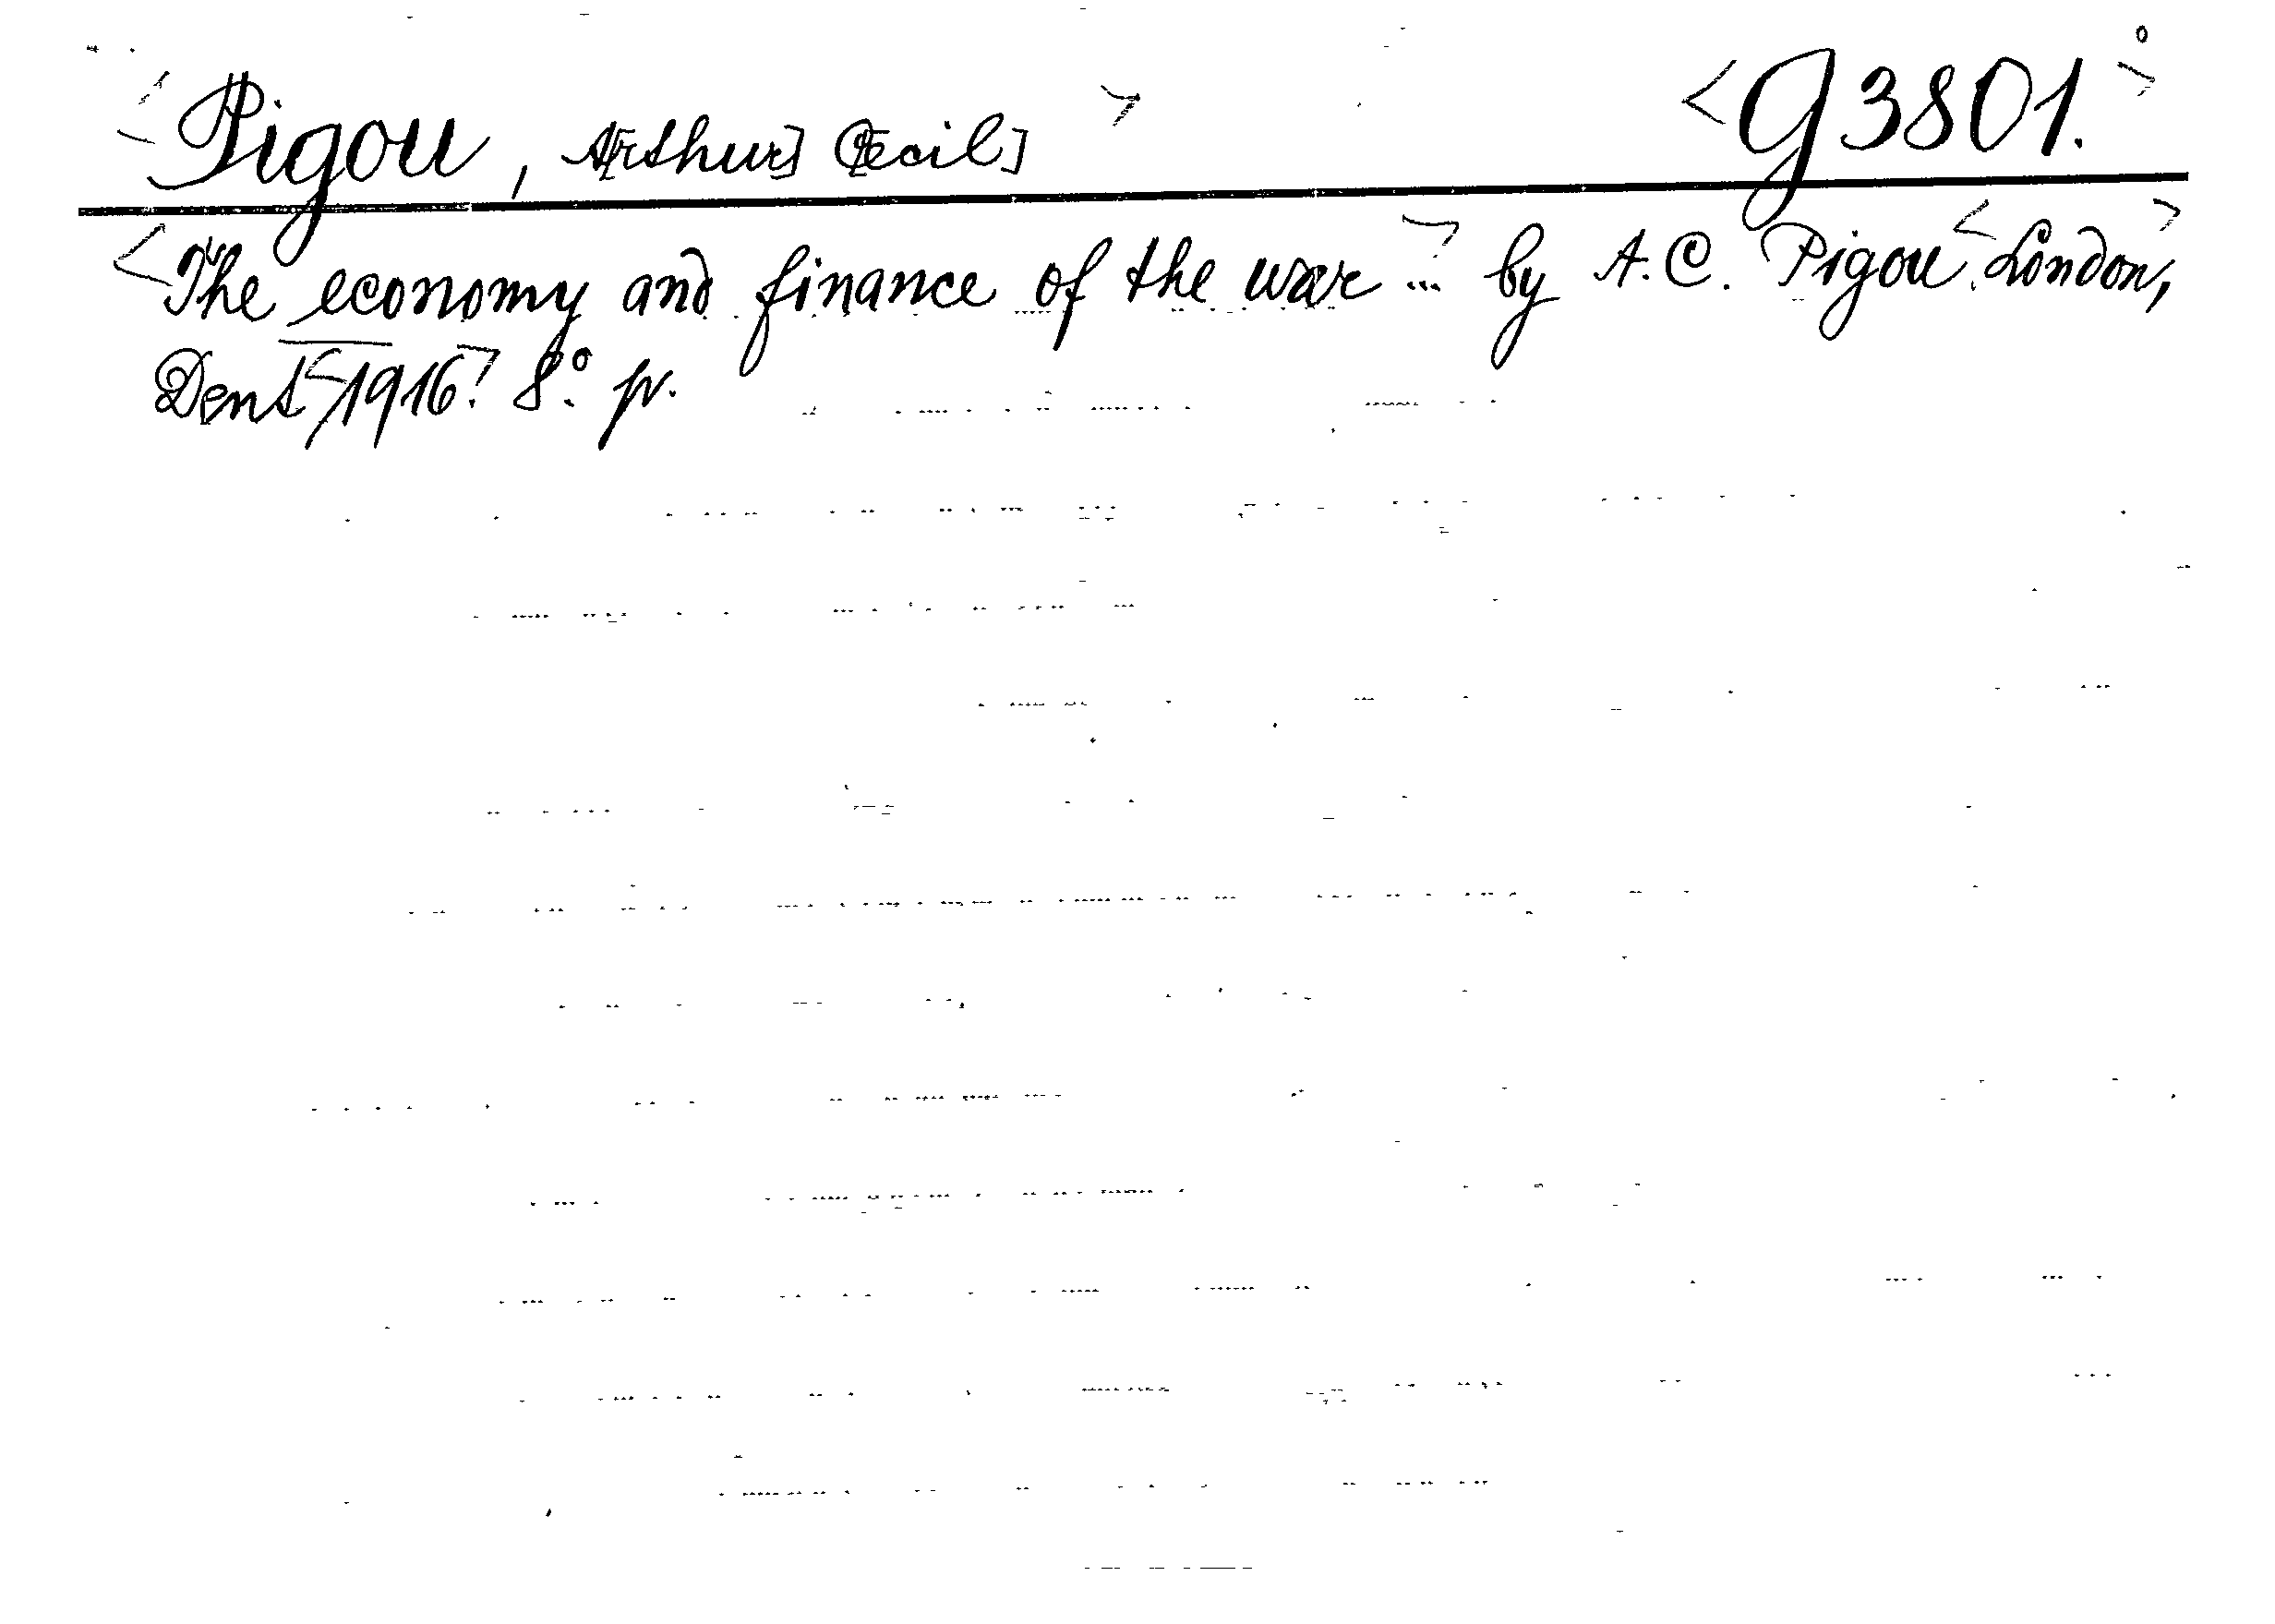 <Pigou, A[rthur] C[ecil]> <G 3801.>
<The economy and finance of the war> ... by A. C. Pigou <London,
Dent <1916.> 8.° pr.